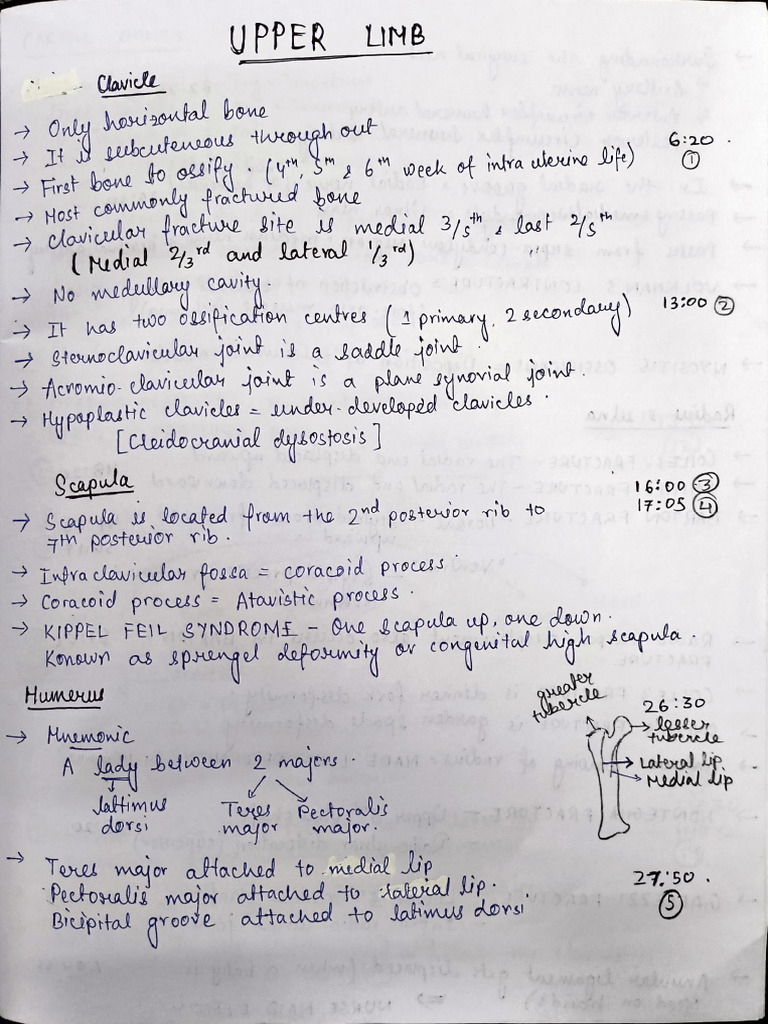 UPPER LIMB
Clavicle
→ Only horizontal bone
→ It is subcutaneous through out
→ First bone to ossify. (4th, 5th & 6th week of intra uterine life) 6:20 ①
→ Most commonly fractured bone
→ Clavicular fracture site is medial 3/5th & last 2/5th
(Medial 2/3rd and lateral 1/3rd)
→ No medullary cavity.
→ It has two ossification centres (1 primary, 2 secondary) 13:00 ②
→ Sternoclavicular joint is a saddle joint.
→ Acromio-clavicular joint is a plane synovial joint.
→ Hypoplastic clavicles = under-developed clavicles.
[Cleidocranial dysostosis]
Scapula
16:00 ③
→ Scapula is located from the 2nd posterior rib to 17:05 ④
7th posterior rib.
→ Infraclavicular fossa = coracoid process.
→ Coracoid process = Atavistic process.
→ KIPPEL FEIL SYNDROME - One scapula up, one down.
Konown as sprengel deformity or congenital high scapula.
Humerus
→ Mnemonic
A lady between 2 majors.
lattimus dorsi
Teres major
Pectoralis major.
greater tubercle
26:30
lesser tubercle
Lateral lip
Medial lip
→ Teres major attached to medial lip
Pectoralis major attached to lateral lip.
Bicipital groove attached to latimus dorsi
27:50.
⑤